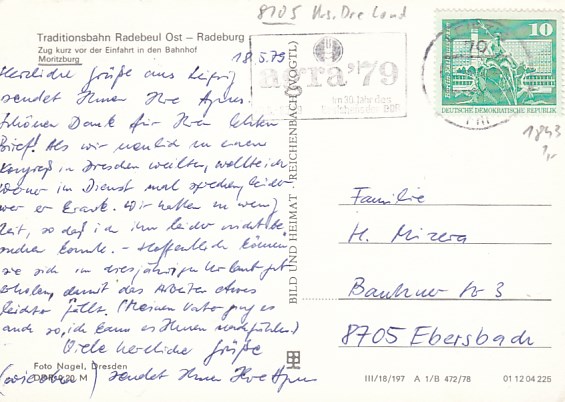 8105 Mrs. Dre Land
Traditionsbahn Radebeul Ost — Radeburg
Zug kurz vor der Einfahrt in den Bahnhof
Moritzburg
18.5.79
Herzliche Grüße aus Leipzig
sendet Ihnen Ihre Agnes.
Schönen Dank für Ihren letzten
Brief! Als wir neulich zu einem
Kongreß in Dresden weilten, wollte ich
Werner im Dienst mal sprechen, leider
war er krank. Wir hatten zu wenig
Zeit, so daß ich ihn leider nicht be-
suchen konnte. - Hoffentlich können
sie sich im diesjährigen Urlaub gut
erholen, damit das Arbeiten etwas
leichter fällt. (Meinem Vater ging es
auch so, ich kann es Ihnen nachfühlen)
Viele herzliche Grüße
sendet Ihnen Ihre Agnes
Foto Nagel, Dresden
BILD UND HEIMAT · REICHENBACH (VOGTL)
agra '79
Im 30. Jahr des
Bestehens der DDR
10
DEUTSCHE DEMOKRATISCHE REPUBLIK
1843
1,-
Familie
H. Mizera
Bautzner Str 3
8705 Ebersbach
III/18/197 A 1/B 472/78 01 12 04 225